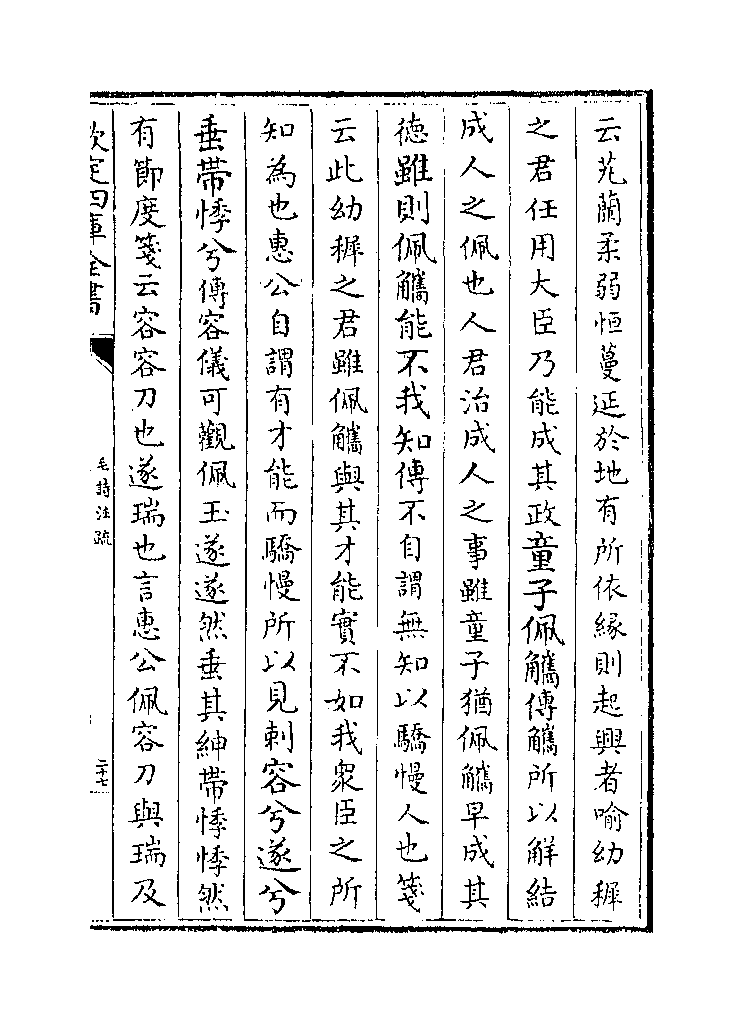 云芄蘭柔弱恒蔓延於地有所依緣則起興者喻幼穉
之君任用大臣乃能成其政童子佩觿傳觿所以解結
成人之佩也人君治成人之事雖童子猶佩觿早成其
德雖則佩觿能不我知傳不自謂無知以驕慢人也箋
云此幼穉之君雖佩觿與其才能實不如我衆臣之所
知為也惠公自謂有才能而驕慢所以見刺容兮遂兮
垂帶悸兮傳容儀可觀佩玉遂遂然垂其紳帶悸悸然
有節度箋云容容刀也遂瑞也言惠公佩容刀與瑞及
欽定四庫全書
毛詩注疏
二十七